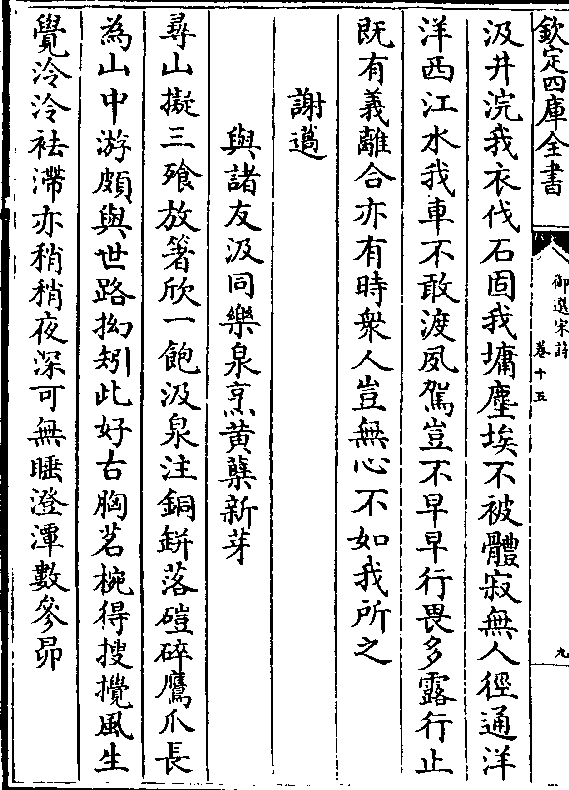 欽定四庫全書
御選宋詩
卷十五
九
汲井浣我衣伐石固我墉塵埃不被體寂無人徑通洋
洋西江水我車不敢渡夙駕豈不早早行畏多露行止
既有義離合亦有時衆人豈無心不如我所之
謝薖
與諸友汲同樂泉烹黄蘗新芽
尋山擬三飱放箸欣一飽汲泉注銅缾落磑碎鷹爪長
為山中游頗與世路拗矧此好古胸茗椀得搜攪風生
覺泠泠祛滯亦稍稍夜深可無睡澄潭數參昴